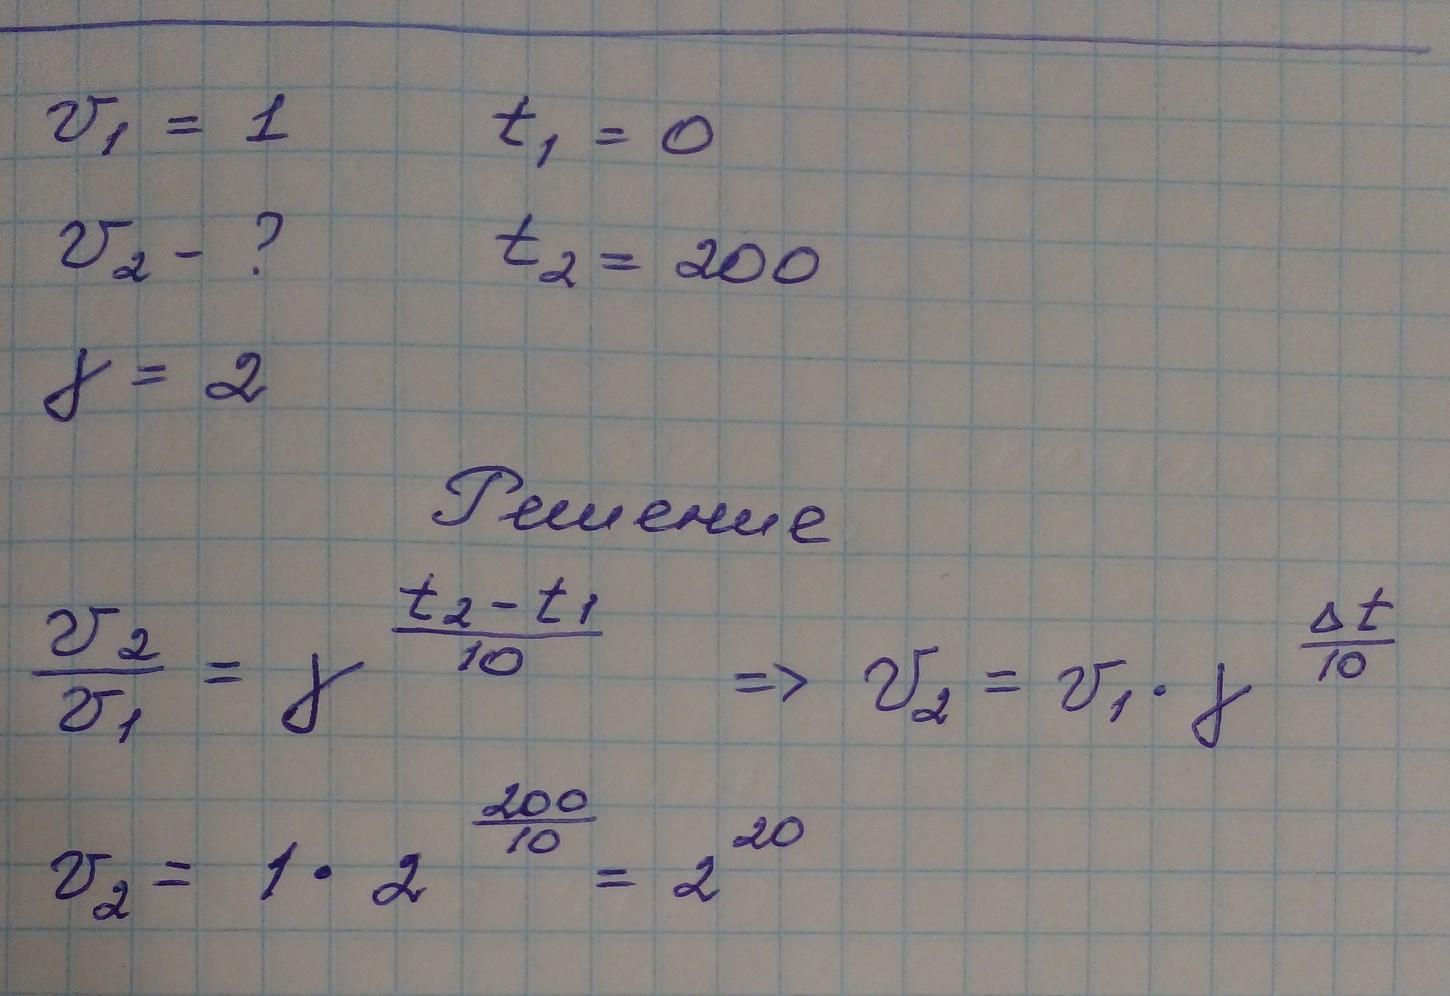 v₁ = 1 t₁ = 0
v₂ - ? t₂ = 200
γ = 2
Решение
v₂/v₁ = γ^((t₂ - t₁)/10) => v₂ = v₁ · γ^(Δt/10)
v₂ = 1 · 2^(200/10) = 2^20